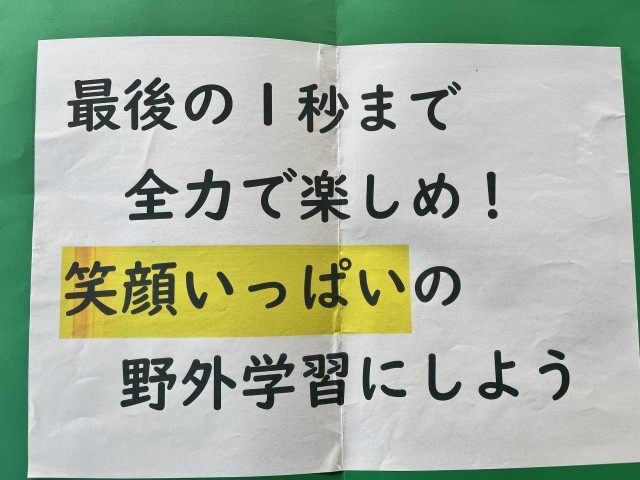 最後の1秒まで
全力で楽しめ！
笑顔いっぱいの
野外学習にしよう